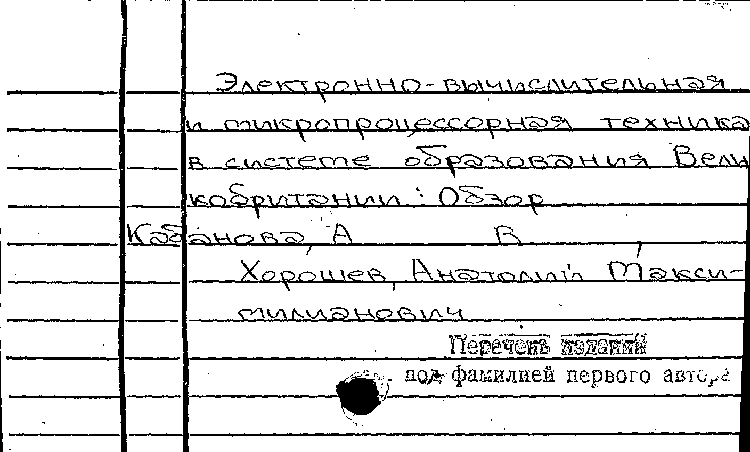 Электронно-вычислительная
и микропроцессорная техника
в системе образования Вели
кобритании : Обзор
Кабанова, А В ,
Хорошев, Анатолий Макси-
милианович
Перечень изданий
под фамилией первого автора